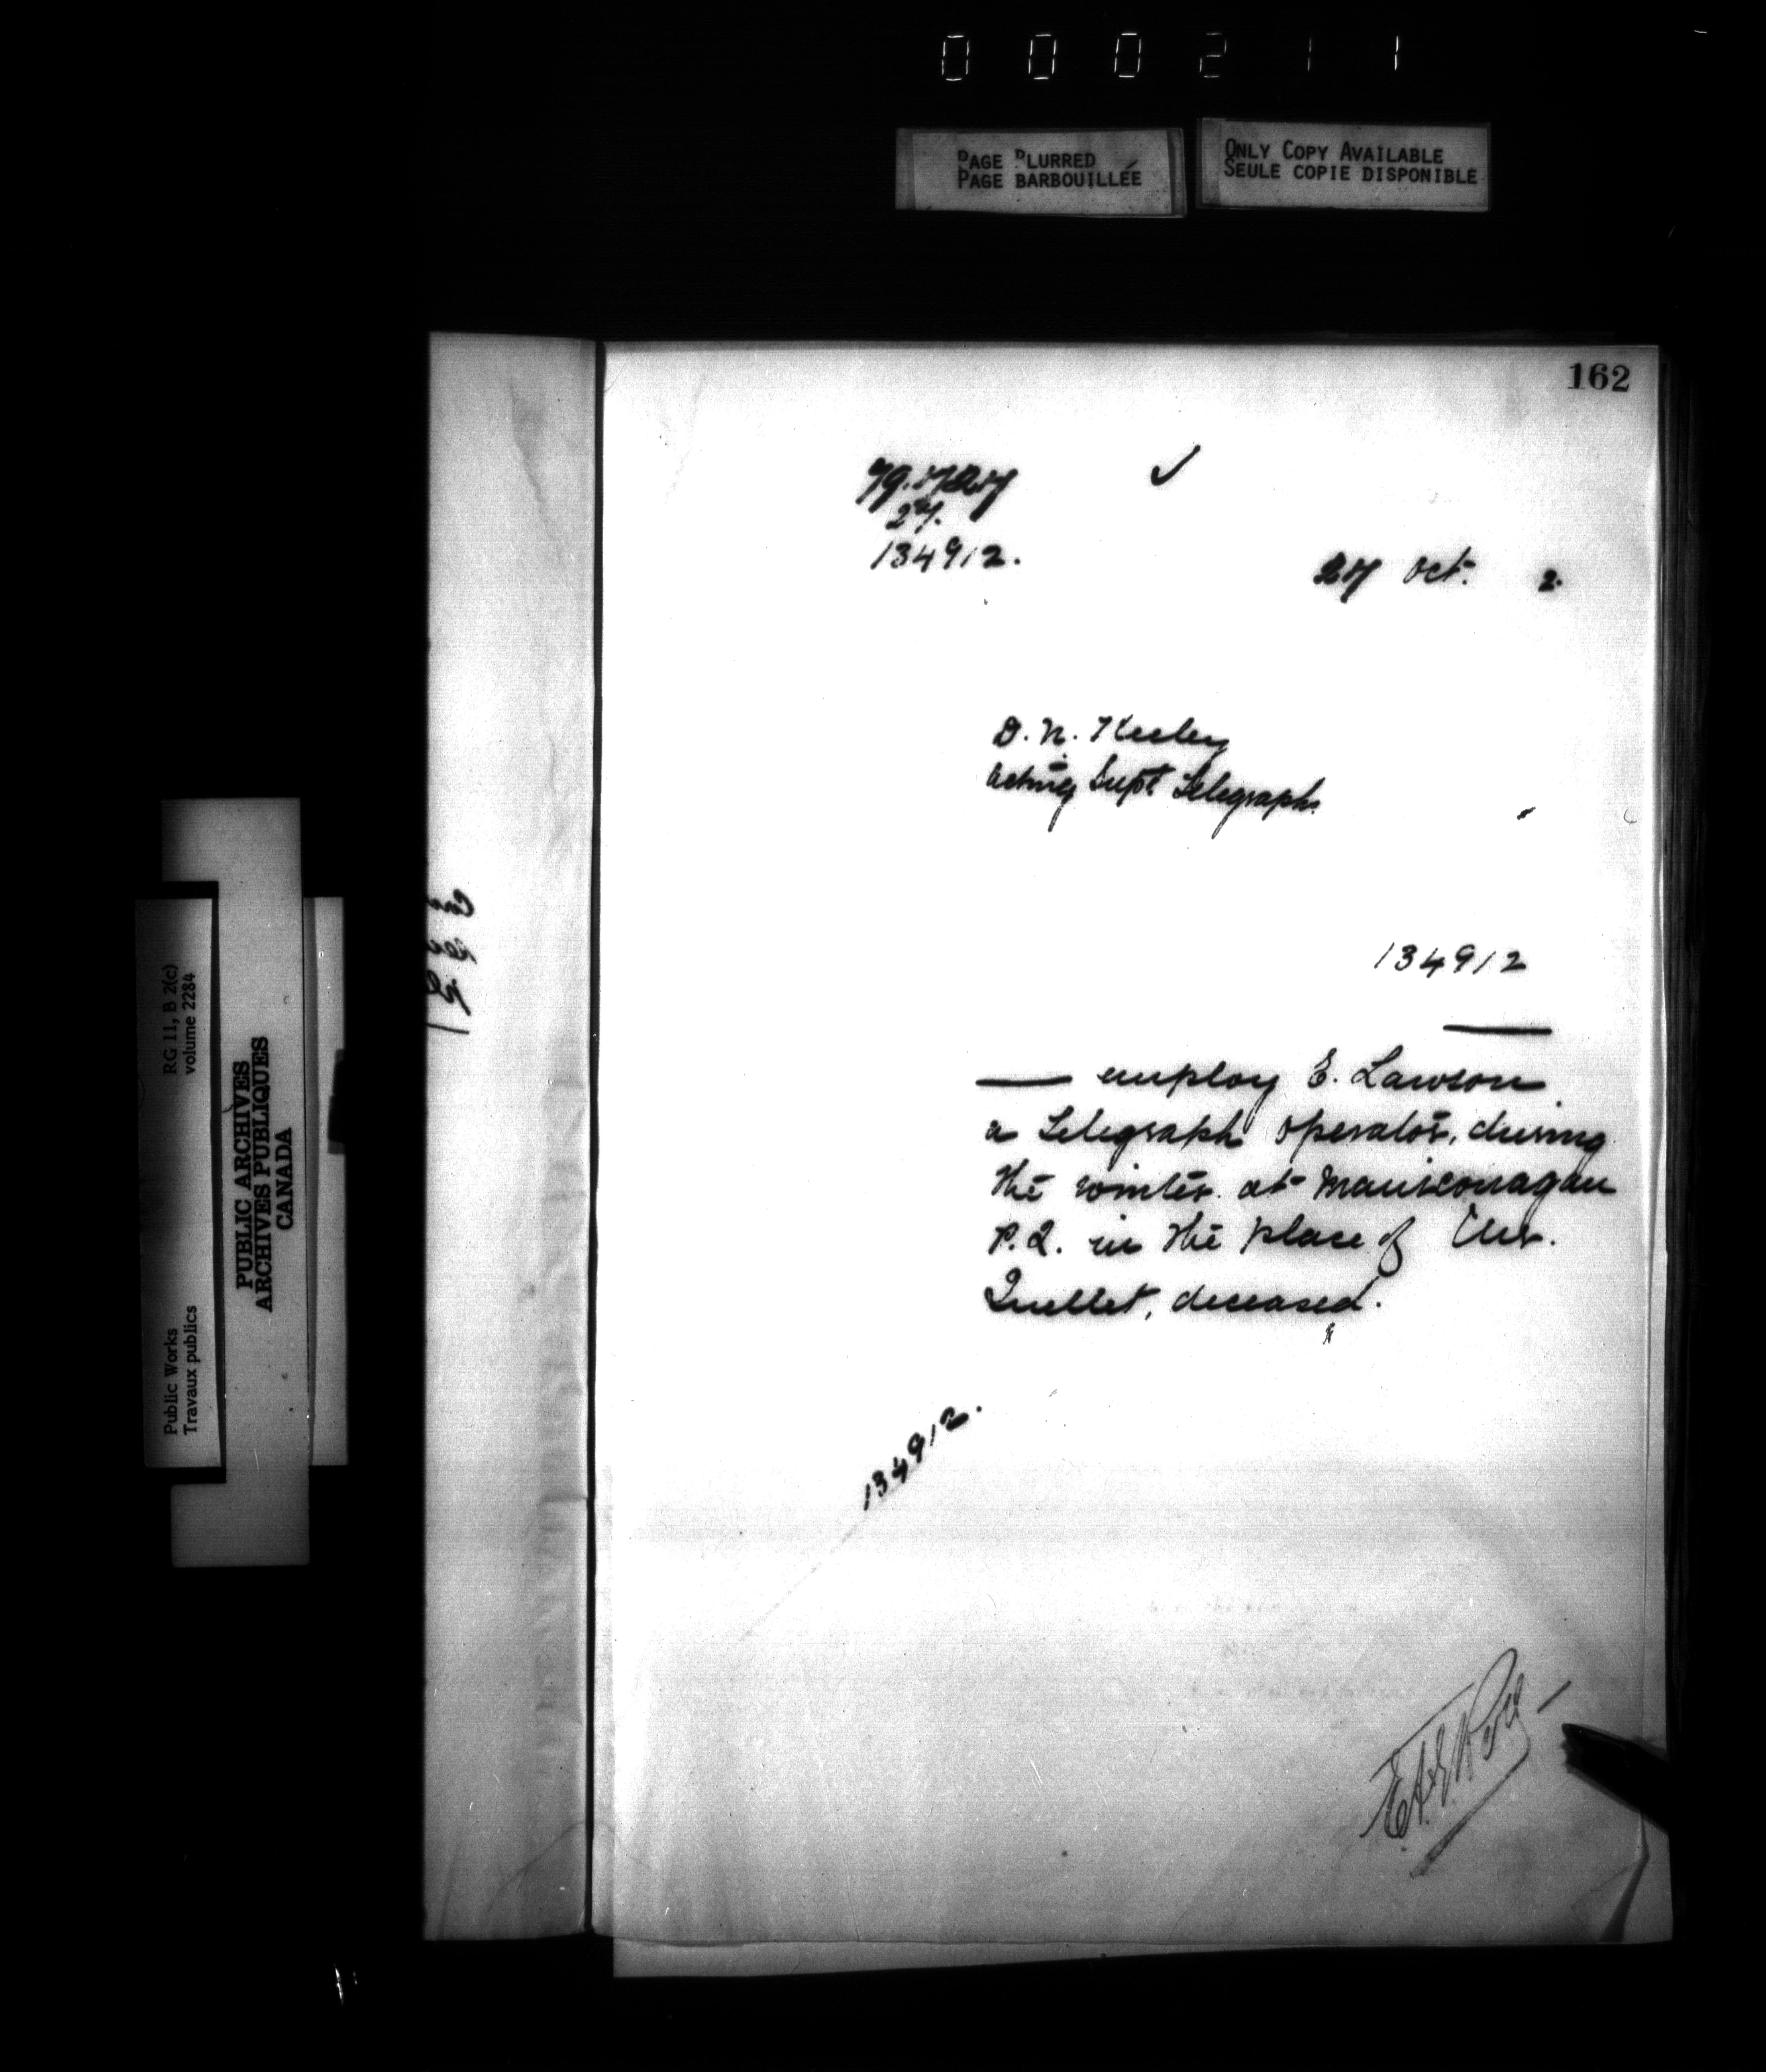 000211
PAGE BLURRED
PAGE BARBOUILLÉE
ONLY COPY AVAILABLE
SEULE COPIE DISPONIBLE
162
134912.
27 Oct. 2.
D. N. Keeley
Acting Supt. Telegraphs
134912
employ E. Lawson
a Telegraph operator, during
the winter at Manicouagan
P.Q. in the place of
Ouellet, deceased.
134912.
RG 11, B 2(c)
volume 2284
PUBLIC ARCHIVES
ARCHIVES PUBLIQUES
CANADA
Public Works
Travaux publics